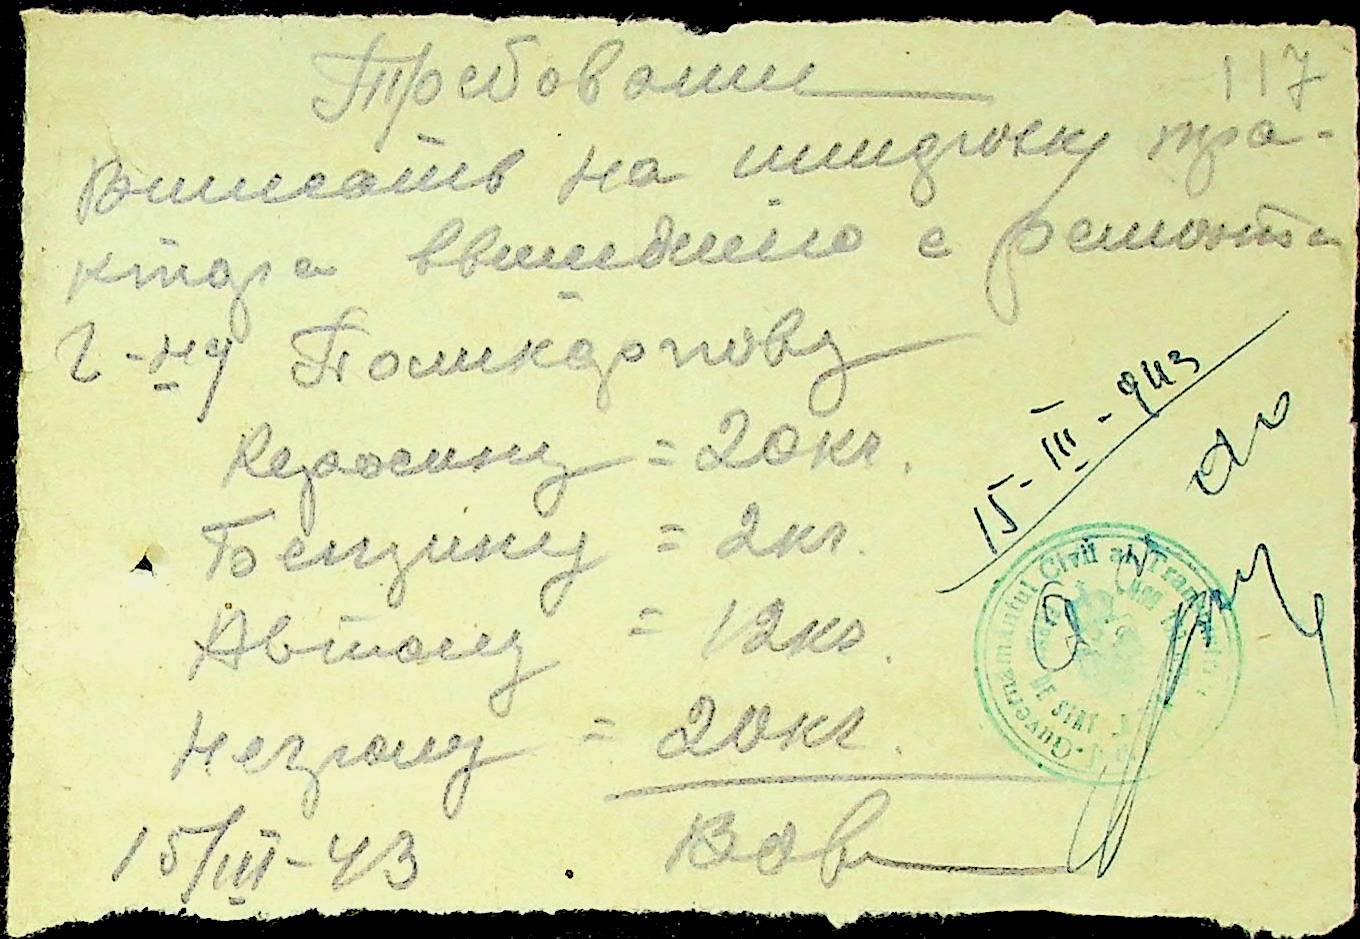 117
Требование
Выписать на шидроку тра-
ктора ввишедшего с ремонта
г-ну Поликарпову
Керосину = 20 кг.
Бензину = 2 кг.
Автолу = 12 кг.
Негролу = 20 кг.
15/III-43
15-III-943
Guvernământul Civil al Trans
DE STAT